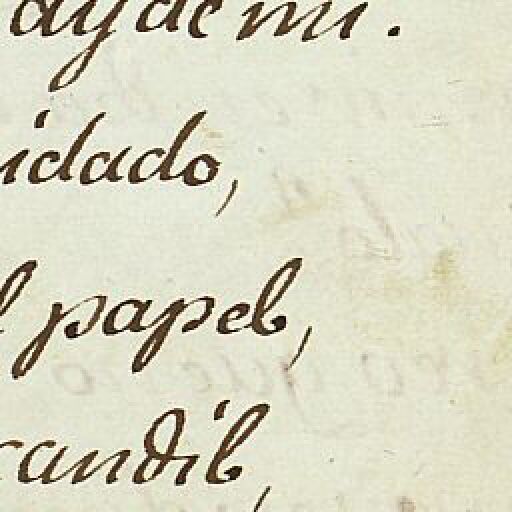 ay de mi.
idado,
l papel,
candil,